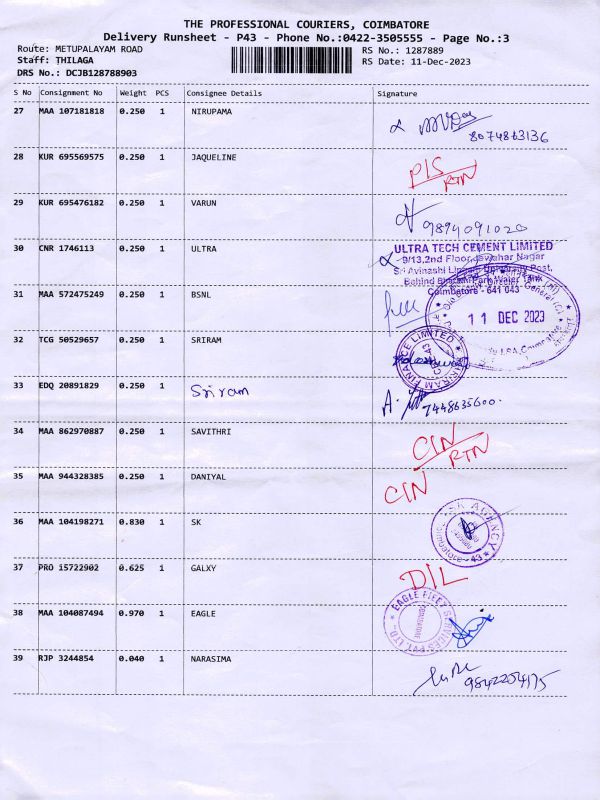 THE PROFESSIONAL COURIERS, COIMBATORE
Delivery Runsheet - P43 - Phone No.:0422-3505555 - Page No.:3
Route: METUPALAYAM ROAD RS No.: 1287889
Staff: THILAGA RS Date: 11-Dec-2023
DRS No.: DCJB128788903
S No Consignment No Weight PCS Consignee Details Signature
27 MAA 107181818 0.250 1 NIRUPAMA
8074863136
28 KUR 695569575 0.250 1 JAQUELINE P/S
RTN
29 KUR 695476182 0.250 1 VARUN
9894091020
30 CNR 1746113 0.250 1 ULTRA ULTRA TECH CEMENT LIMITED
9/13,2nd Floor,Jawahar Nagar
Sri Avinashi Lingam University Post,
Behind Water Tank
Coimbatore - 641 043
31 MAA 572475249 0.250 1 BSNL
11 DEC 2023
32 TCG 50529657 0.250 1 SRIRAM SHRIRAM FINANCE LIMITED
33 EDQ 20891829 0.250 1 Sriram
7448635600.
34 MAA 862970887 0.250 1 SAVITHRI CIN
RTN
35 MAA 944328385 0.250 1 DANIYAL CIN
36 MAA 104198271 0.830 1 SK SK AGENCY
37 PRO 15722902 0.625 1 GALXY D/L
38 MAA 104087494 0.970 1 EAGLE EAGLE FLEET SERVICES PVT. LTD
COIMBATORE
39 RJP 3244854 0.040 1 NARASIMA
9842254175